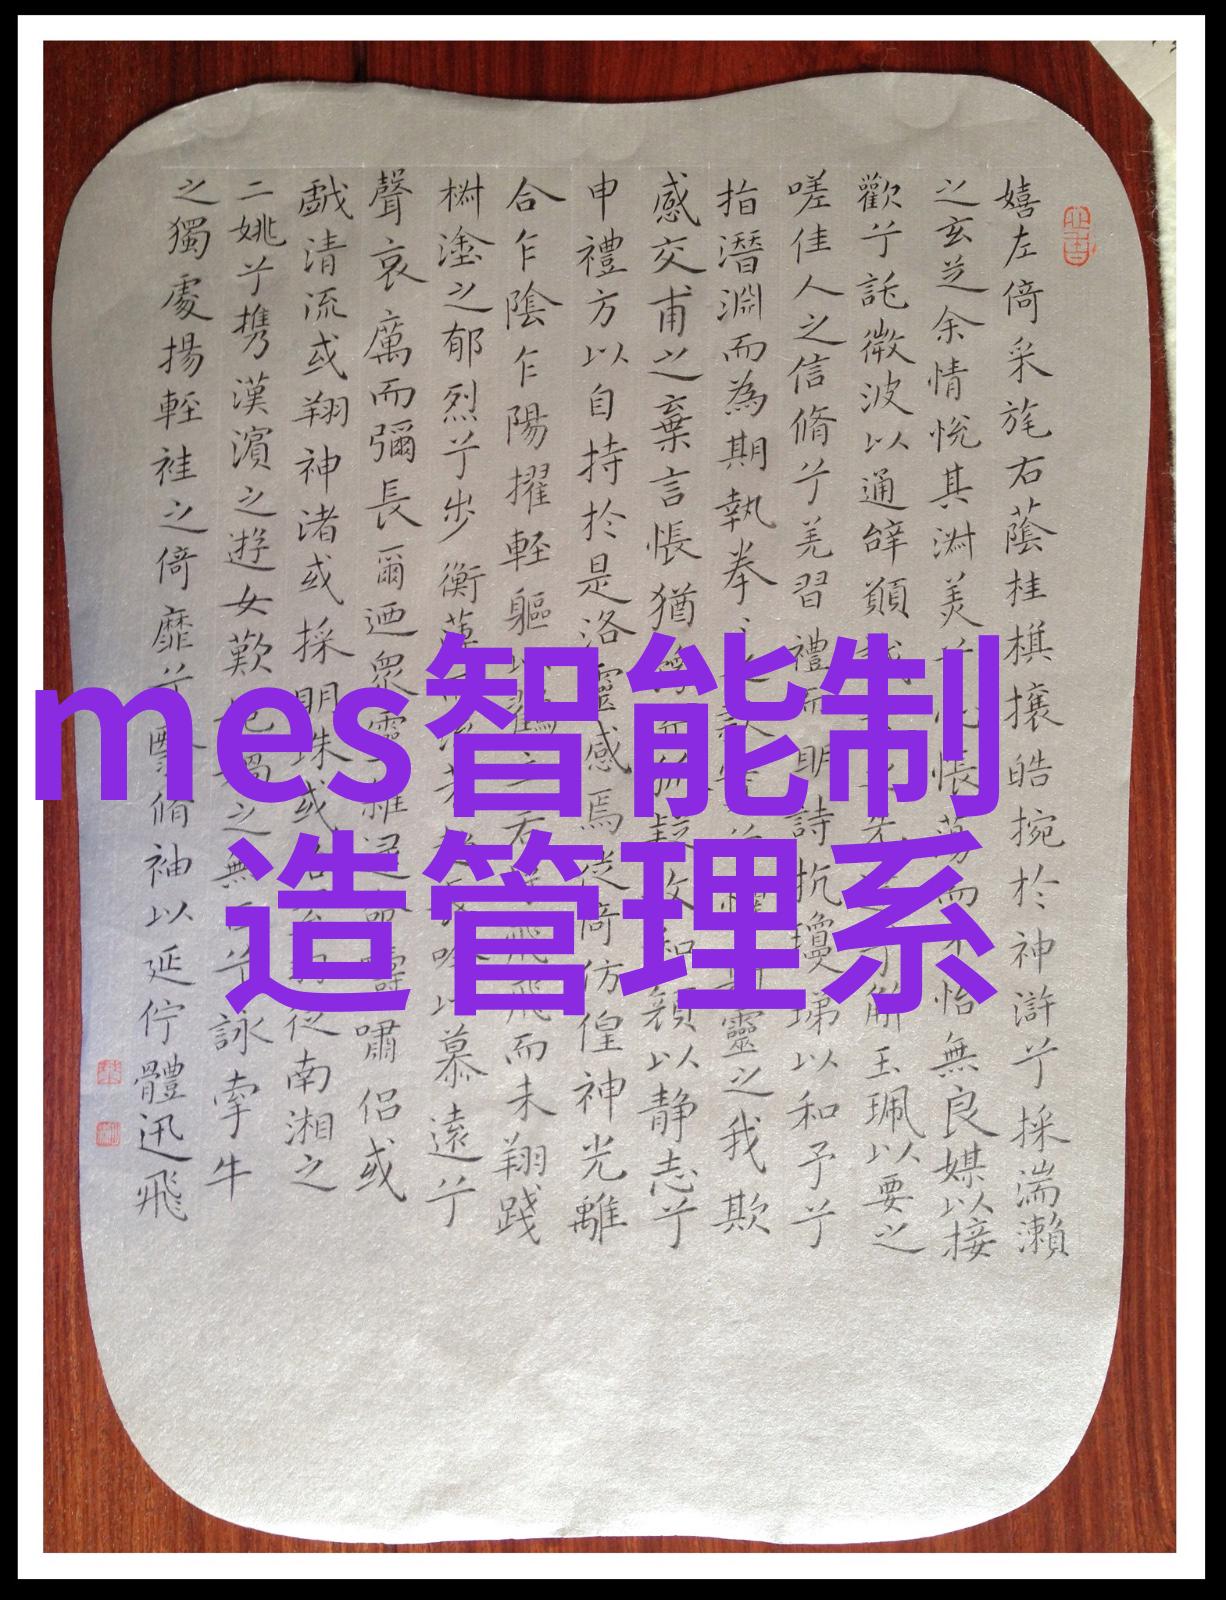 嬉左倚采旄右蔭桂棋攘皓捥於神滸兮採湍瀨
之玄芝余情悅其淑美兮悵蕩而不怡無良媒以接
歡兮託微波以通辭願誠先兮解玉珮以要之
嗟佳人之信脩兮羌習禮而明詩抗瓊珶以和予兮
指潛淵而為期執拳之款實兮懼靈之我欺
感交甫之棄言悵猶疑收和顏以靜志兮
申禮方以自持於是洛靈感焉徙倚仿偟神光離
合乍陰乍陽擢輕軀以鶴立若飛而未翔踐
椒塗之郁烈兮步衡薄芳長吟以慕遠兮
聲哀厲而彌長爾迺眾靈雜遝儔嘯侶或
戲清流或翔神渚或採明珠或從南湘之
二姚兮攜漢濱之遊女歎之無匹兮詠牽牛
之獨處揚輕袿之倚靡兮翳脩袖以延佇體迅飛
mes智能制
造管理系